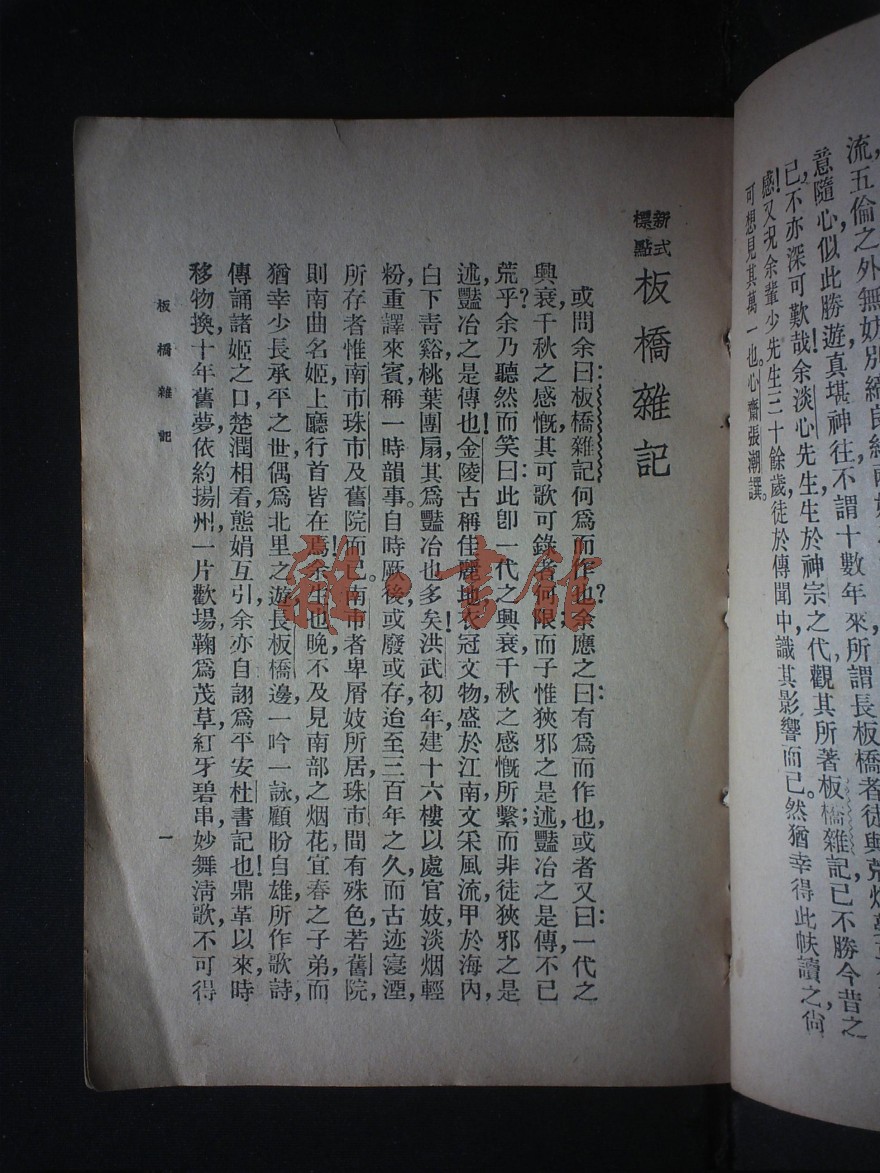 流，五倫之外無妨別締良緣
意隨心似此勝遊真堪神往不謂十數年來所謂長板橋者徒與荒烟
已，不亦深可歎哉！余淡心先生生於神宗之代觀其所著板橋雜記已不勝今昔之
感！又況余輩少先生三十餘歲，徒於傳聞中識其影響而已。然猶幸得此帙讀之，尙
可想見其萬一也。心齋張潮譔。
新式標點 板橋雜記
或問余曰：板橋雜記何爲而作也？余應之曰：有爲而作也，或者又曰：一代之
興衰，千秋之感慨，其可歌可錄者何限，而子惟狹邪之是述，豔冶之是傳，不已
荒乎？余乃聽然而笑曰：此卽一代之興衰，千秋之感慨所繫；而非徒狹邪之是
述，豔冶之是傳也！金陵古稱佳麗地，衣冠文物，盛於江南，文采風流，甲於海內，
白下青谿，桃葉團扇，其爲豔冶也多矣！洪武初年，建十六樓以處官妓，淡烟輕
粉，重譯來賓，稱一時韻事。自時厥後，或廢或存，迨至三百年之久，而古迹寖湮，
所存者惟南市珠市及舊院而已。南市者卑屑妓所居，珠市間有殊色，若舊院，
則南曲名姬，上廳行首皆在焉！余生也晚，不及見南部之烟花，宜春之子弟，而
猶幸少長承平之世，偶爲北里之遊，長板橋邊，一吟一詠，顧盼自雄，所作歌詩，
傳誦諸姬之口，楚潤相看，態娟互引，余亦自詡爲平安杜書記也！鼎革以來，時
移物換，十年舊夢，依約揚州，一片歡場，鞠爲茂草，紅牙碧串，妙舞淸歌，不可得
板橋雜記
一
雜·書館